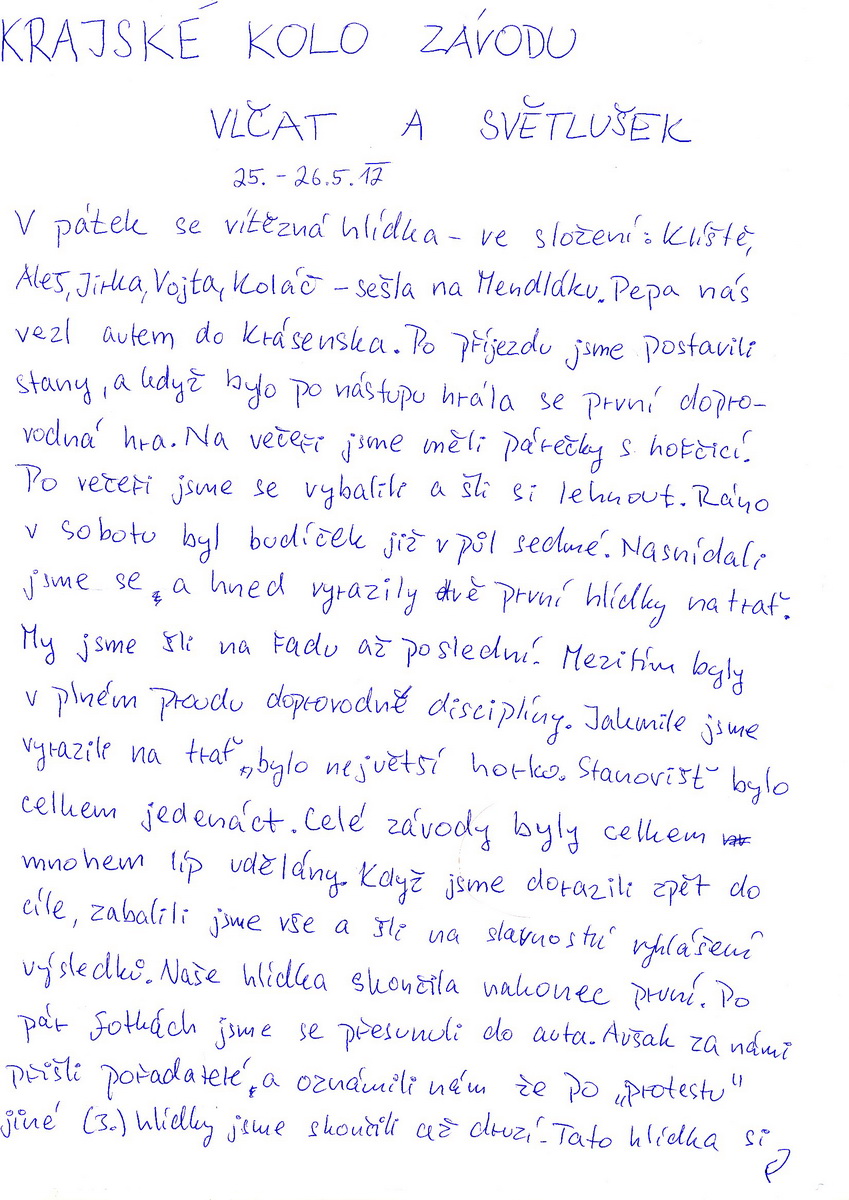 KRAJSKÉ KOLO ZÁVODU
VLČAT A SVĚTLUŠEK
25. - 26.5.12
V pátek se vítězná hlídka - ve složení: Klíště,
Aleš, Jirka, Vojta, Koláč - sešla na Mendláku. Pepa nás
vezl autem do Krásenska. Po příjezdu jsme postavili
stany, a když bylo po nástupu hrála se první dopro-
vodná hra. Na večeři jsme měli párečky s hořčicí.
Po večeři jsme se vybalili a šli si lehnout. Ráno
v sobotu byl budíček již v půl sedmé. Nasnídali
jsme se, a hned vyrazily dvě první hlídky na trať.
My jsme šli na řadu až poslední. Mezitím byly
v plném proudu doprovodné disciplíny. Jakmile jsme
vyrazili na trať, bylo největší horko. Stanovišť bylo
celkem jedenáct. Celé závody byly celkem
mnohem líp udělány. Když jsme dorazili zpět do
cíle, zabalili jsme vše a šli na slavnostní vyhlášení
výsledků. Naše hlídka skončila nakonec první. Po
pár fotkách jsme se přesunuli do auta. Avšak za námi
přišli pořadatelé, a oznámili nám že po „protestu"
jiné (3.) hlídky jsme skončili až druzí. Tato hlídka si